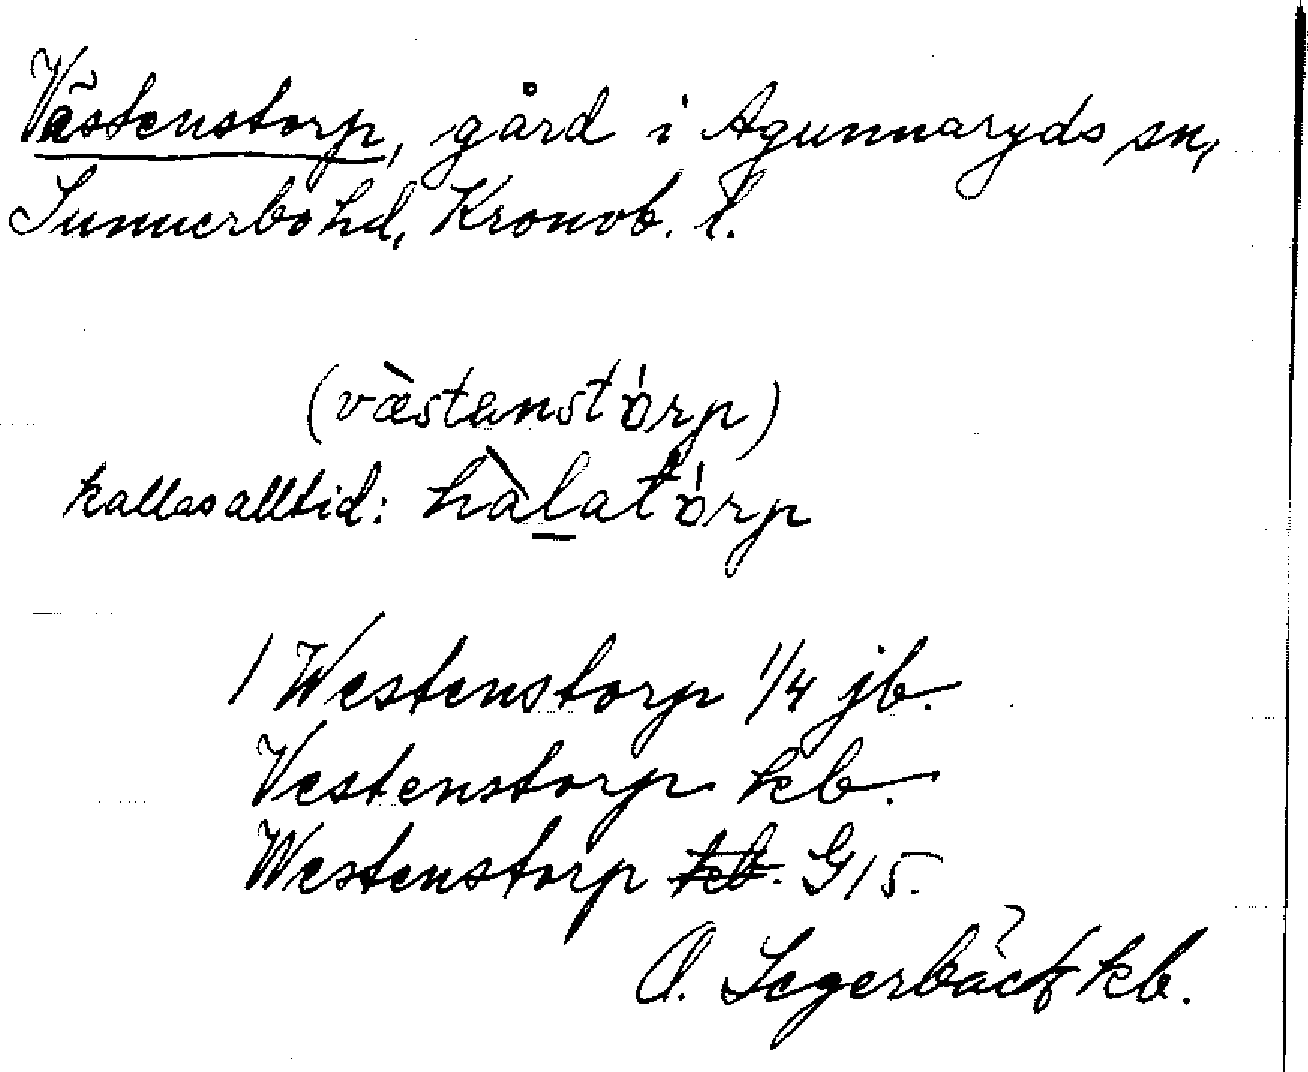 Västenstorp, gård i Agunnaryds sn,
Sunnerbo hd, Kronob. l.
(væ̀stanstórp)
kallas alltid: hàlatórp
1 Westenstorp 1/4 jb.
Vestenstorp kb.
Westenstorp kb. G15.
O. Segerbäck kb.